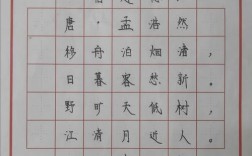 唐·孟浩然
移舟泊烟渚，
日暮客愁新。
野旷天低树，
江清月近人。